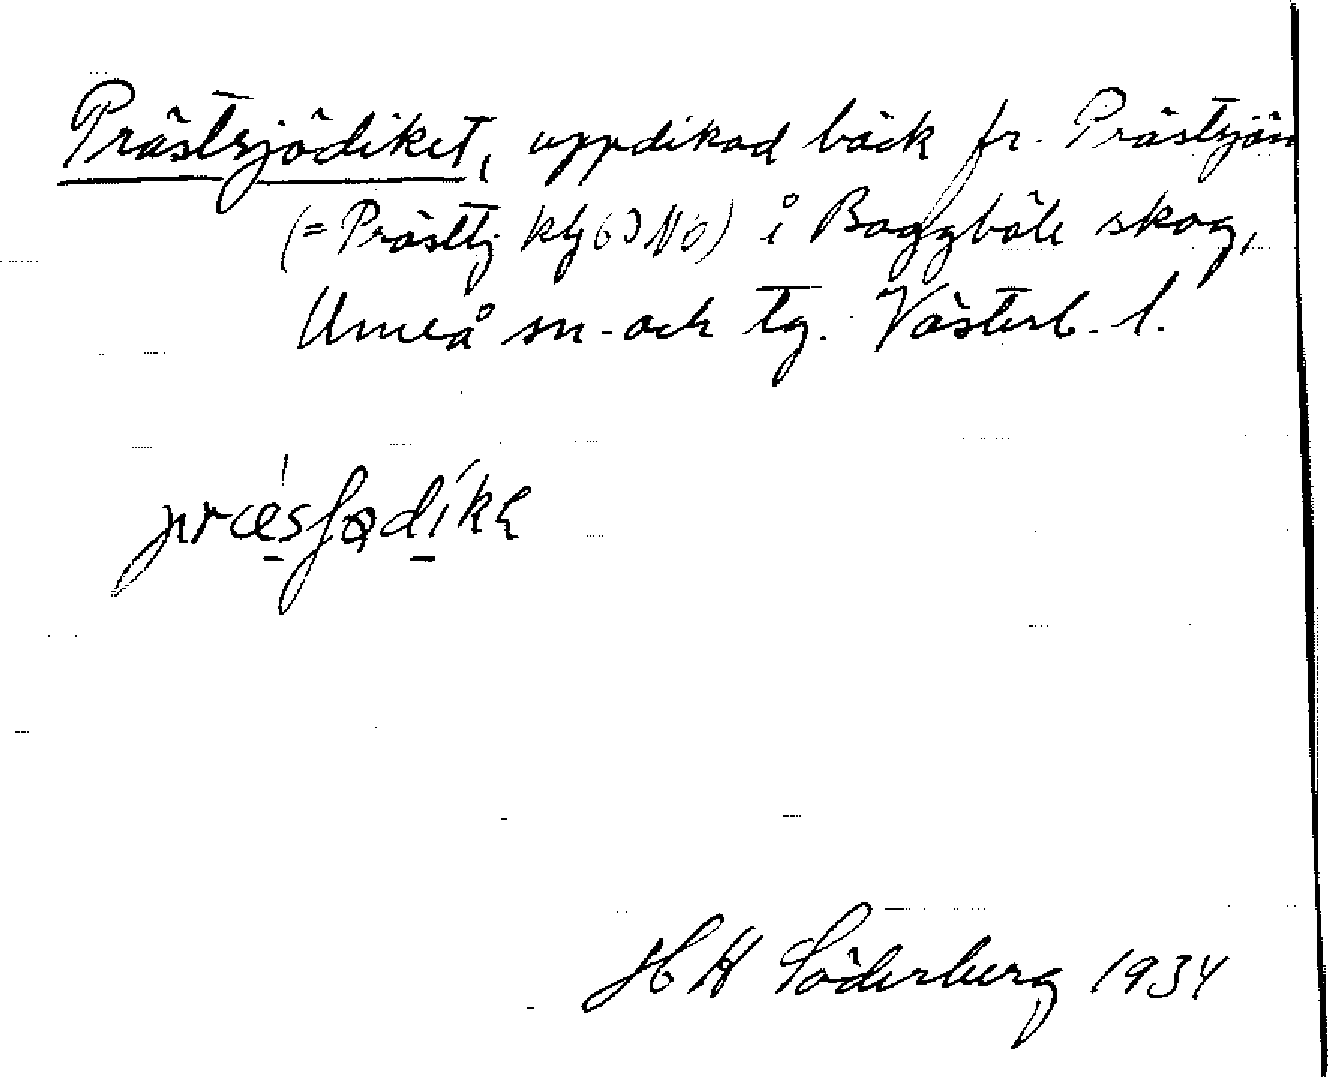 Prästsjödiket, uppdikad bäck fr. Prästsjön
(= Prästtj. kbl 63 NO) i Baggböle skog,
Umeå sn. och tg. Västerb. l.
H H Söderberg 1934